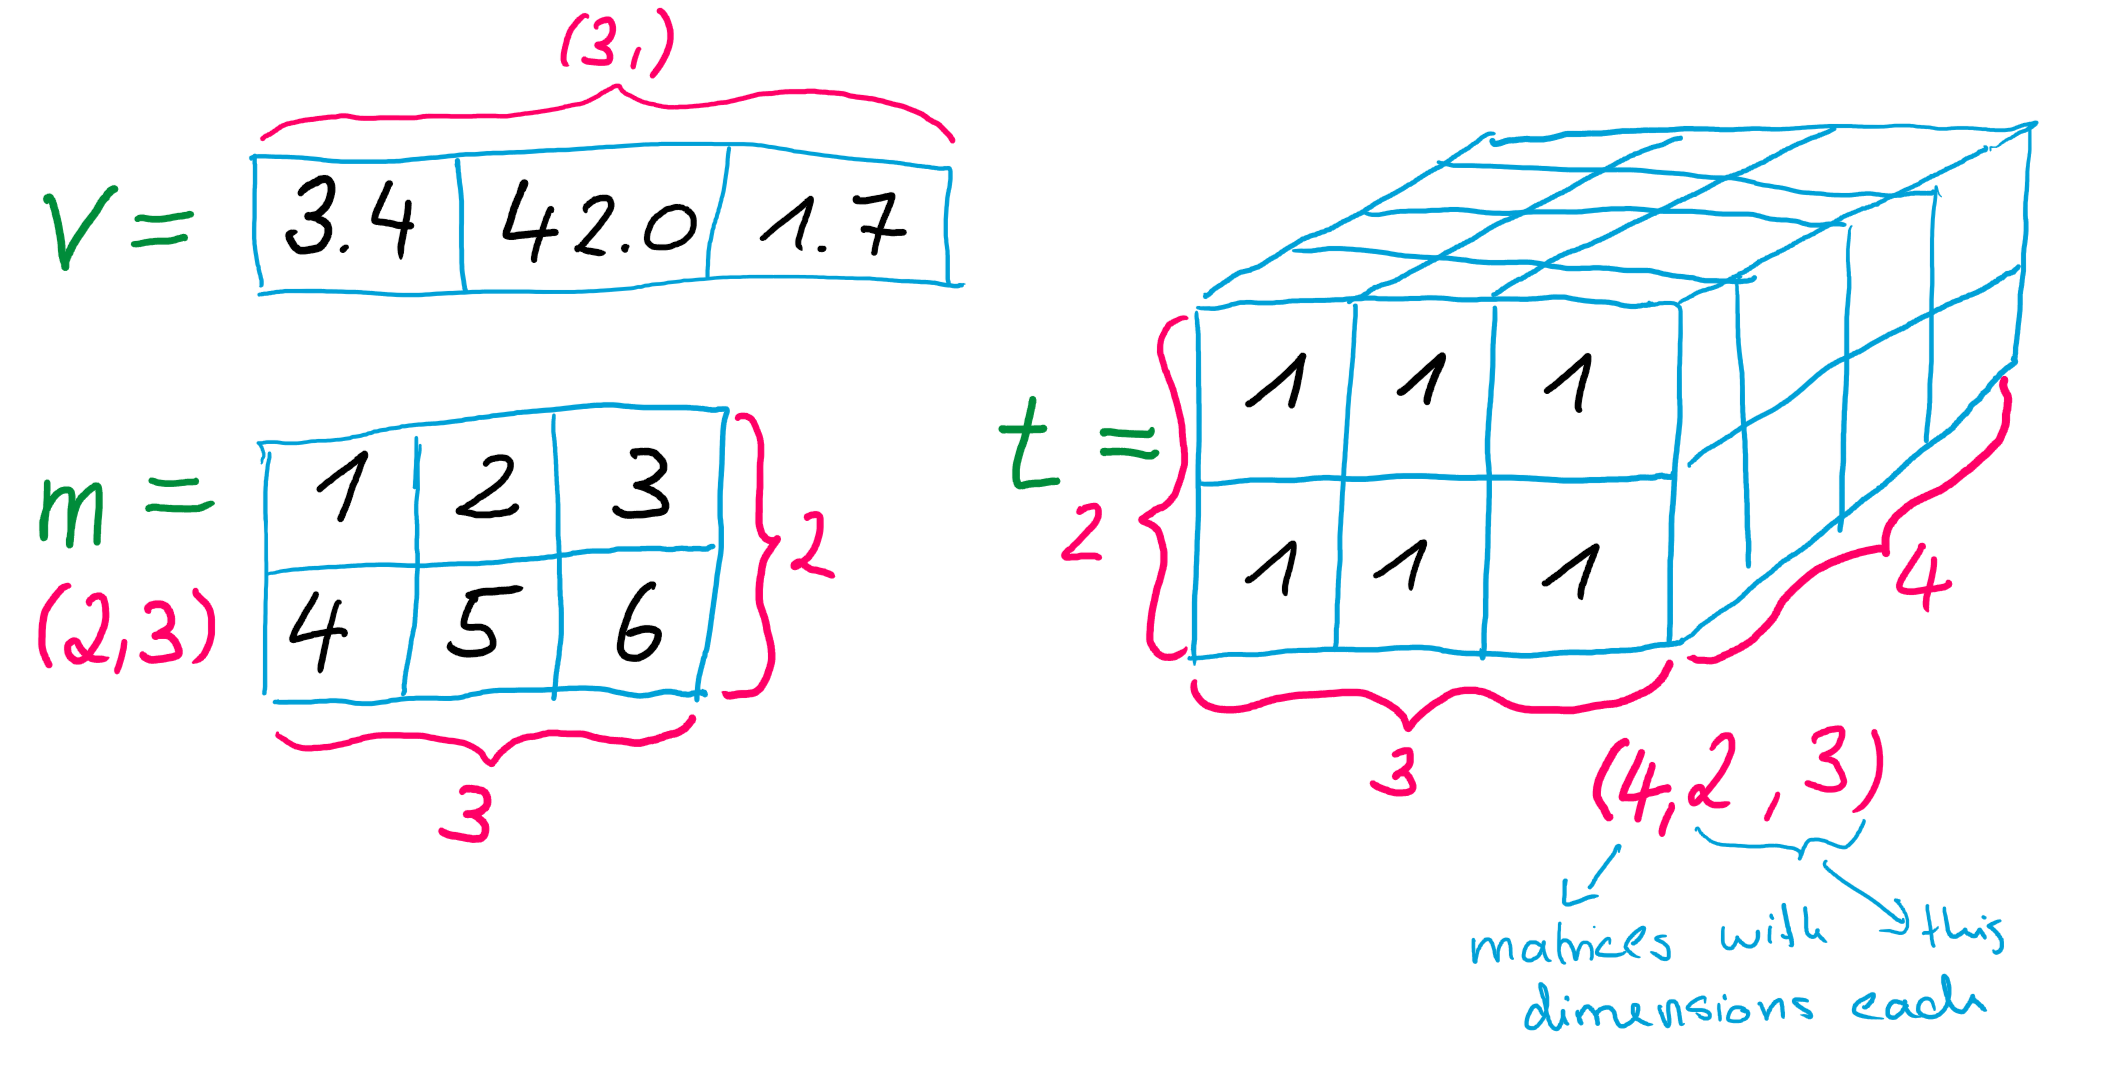 (3,)
v = 3.4 42.0 1.7
m = 1 2 3
4 5 6
(2,3)
2
3
t = 1 1 1
1 1 1
2
4
3
(4,2,3)
matrices with this
dimensions each